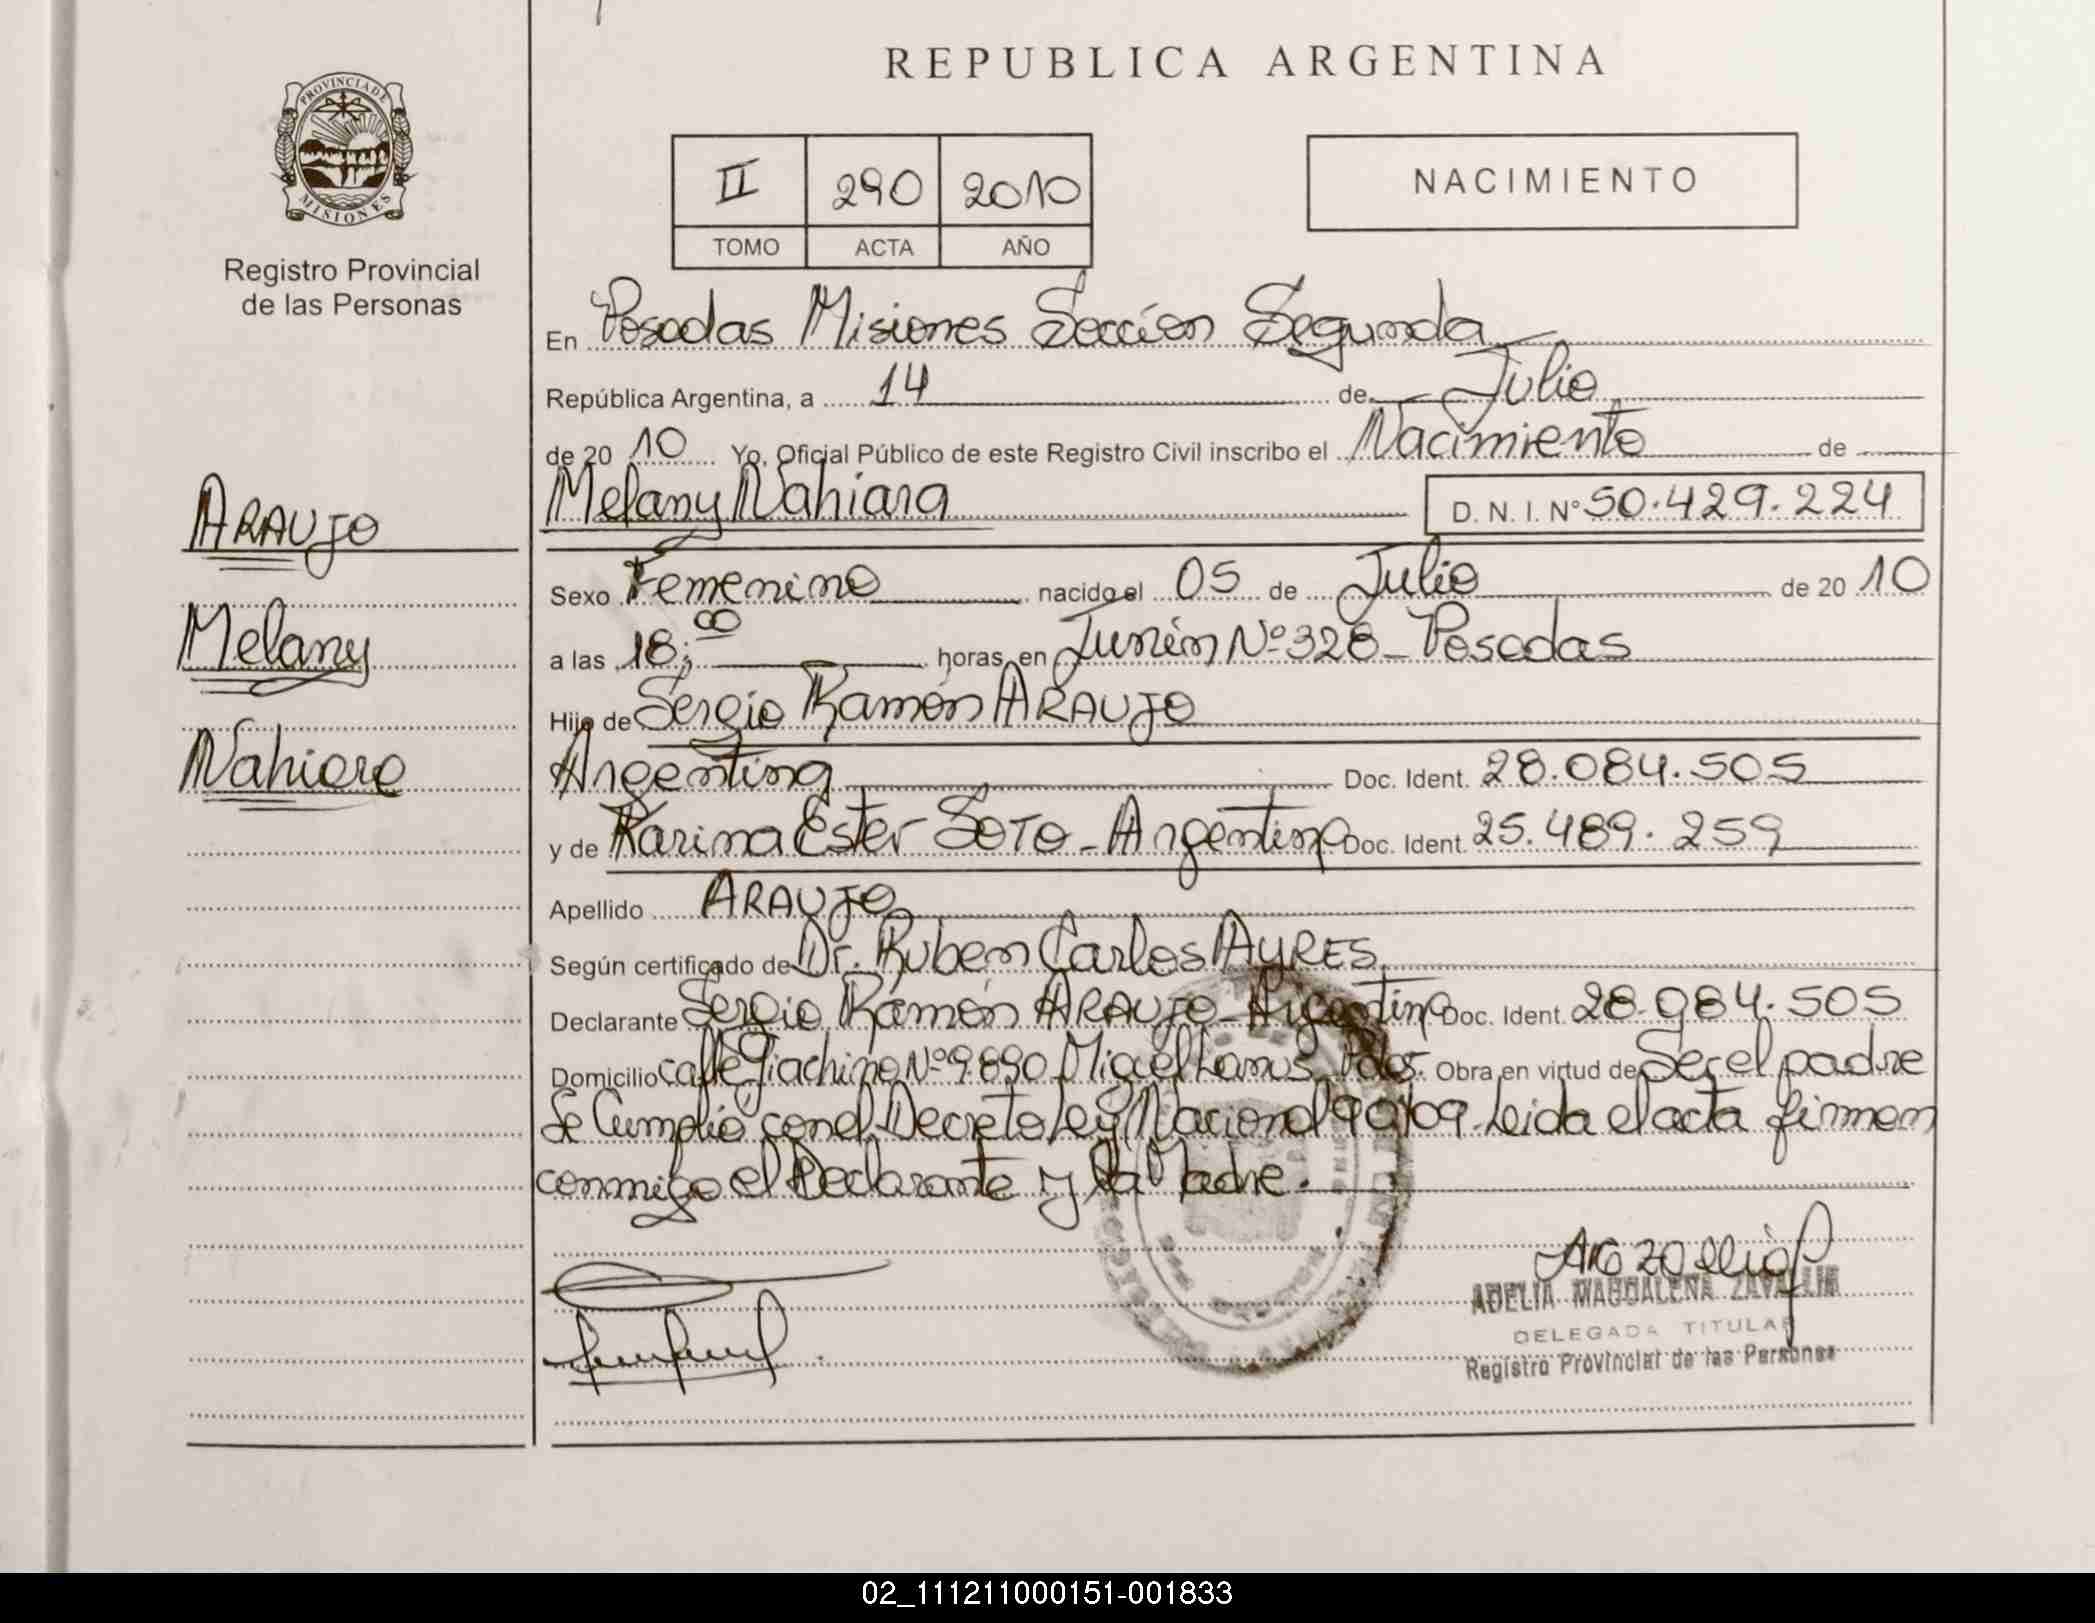 REPUBLICA ARGENTINA
PROVINCIA DE
MISIONES
Registro Provincial
de las Personas
II 290 2010
TOMO ACTA AÑO
NACIMIENTO
En Posadas Misiones Sección Segunda
República Argentina, a 14 de Julio
de 20 10 Yo, Oficial Público de este Registro Civil inscribo el Nacimiento de
Melany Nahiara D. N. I. Nº 50.429.224
ARAUJO
Melany
Nahiara
Sexo Femenino nacido el 05 de Julio de 20 10
a las 18;00 horas, en Junín Nº 328 - Posadas
Hijo de Sergio Ramón ARAUJO
Argentino Doc. Ident. 28.084.505
y de Karina Ester SOTO - Argentina Doc. Ident. 25.489.259
Apellido ARAUJO
Según certificado de Dr. Ruben Carlos AYRES
Declarante Sergio Ramón ARAUJO - Argentino Doc. Ident. 28.084.505
Domicilio calle Giachino Nº 9.890 Miguel Lanus Pdas. Obra en virtud de Ser el padre
Se Cumplió con el Decreto Ley Nacional 90/09. Leida el acta firman
conmigo el Declarante y la Madre.
ADELIA MAGDALENA
DELEGADA TITULAR
Registro Provincial de las Personas
02_111211000151-001833